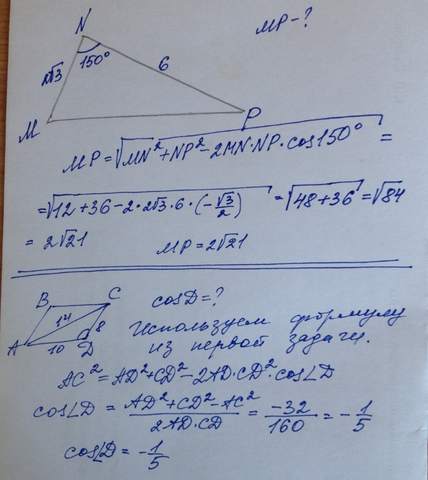 N
MP-?
2√3 150° 6
M P
MP=√MN²+NP²-2MN·NP·cos150° =
=√12+36-2·2√3·6·(-√3/2) =√48+36 =√84
= 2√21 MP=2√21
B C cosD=?
14 8 Используем формулу
A 10 D из первой задачи.
AC²=AD²+CD²-2AD·CD²·cos∠D
cos∠D = AD²+CD²-AC²/2AD·CD = -32/160 = -1/5
cos∠D = -1/5